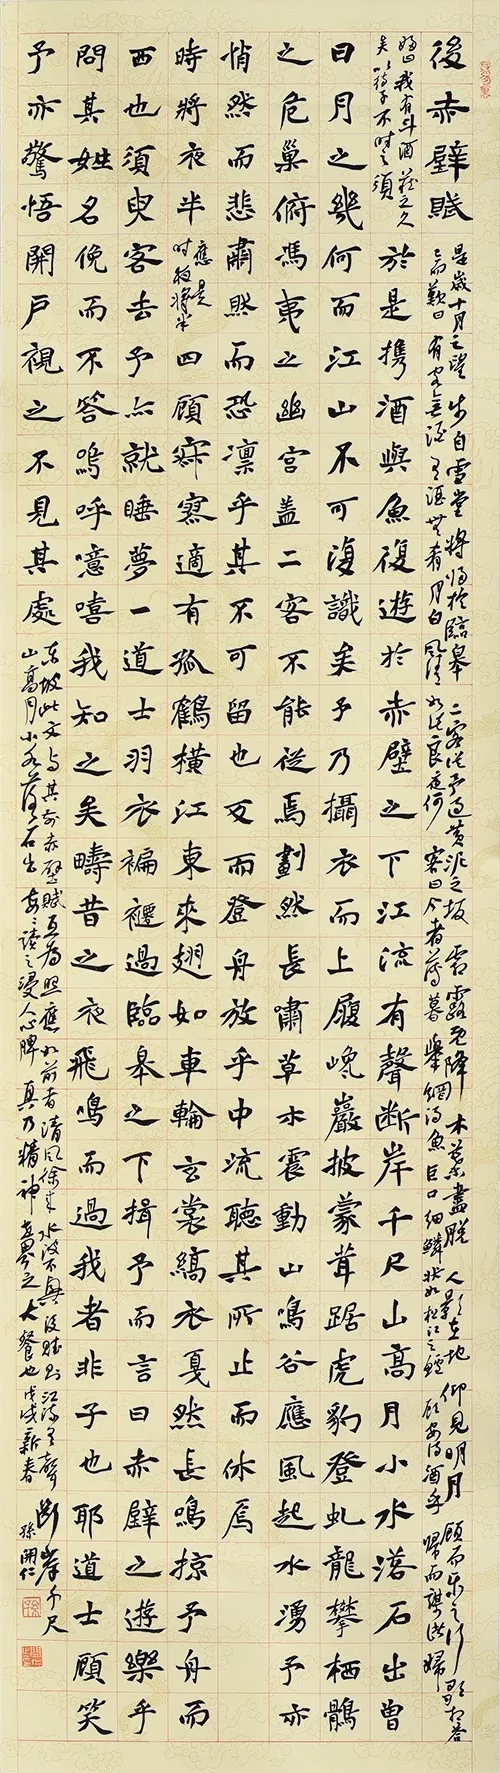 後赤壁賦
是歲十月之望步自雪堂將歸於臨皋二客從予過黃泥之坂霜露既降木葉盡脫人影在地仰見明月顧而樂之行歌相答
已而歎曰有客無酒有酒無肴月白風清如此良夜何客曰今者薄暮舉網得魚巨口細鱗狀如松江之鱸顧安得酒乎歸而謀諸婦
婦曰我有斗酒藏之久
矣以待子不時之須
於是攜酒與魚復遊於赤壁之下江流有聲斷岸千尺山高月小水落石出曾
日月之幾何而江山不可復識矣予乃攝衣而上履巉巖披蒙茸踞虎豹登虬龍攀栖鶻
之危巢俯馮夷之幽宮蓋二客不能從焉劃然長嘯草木震動山鳴谷應風起水湧予亦
悄然而悲肅然而恐凜乎其不可留也反而登舟放乎中流聽其所止而休焉
時將夜半
應是
時夜將半
四顧寂寥適有孤鶴橫江東來翅如車輪玄裳縞衣戛然長鳴掠予舟而
西也須臾客去予亦就睡夢一道士羽衣褊褼過臨皋之下揖予而言曰赤壁之遊樂乎
問其姓名俛而不答嗚呼噫嘻我知之矣疇昔之夜飛鳴而過我者非子也耶道士顧笑
予亦驚悟開戶視之不見其處
東坡此文與其前赤壁賦互為照應如前者清風徐來水波不興後賦則江流有聲斷岸千尺
山高月小水落石出每每讀之浸人心脾真乃精神世界之大餐也戊戌新春
孫開仁